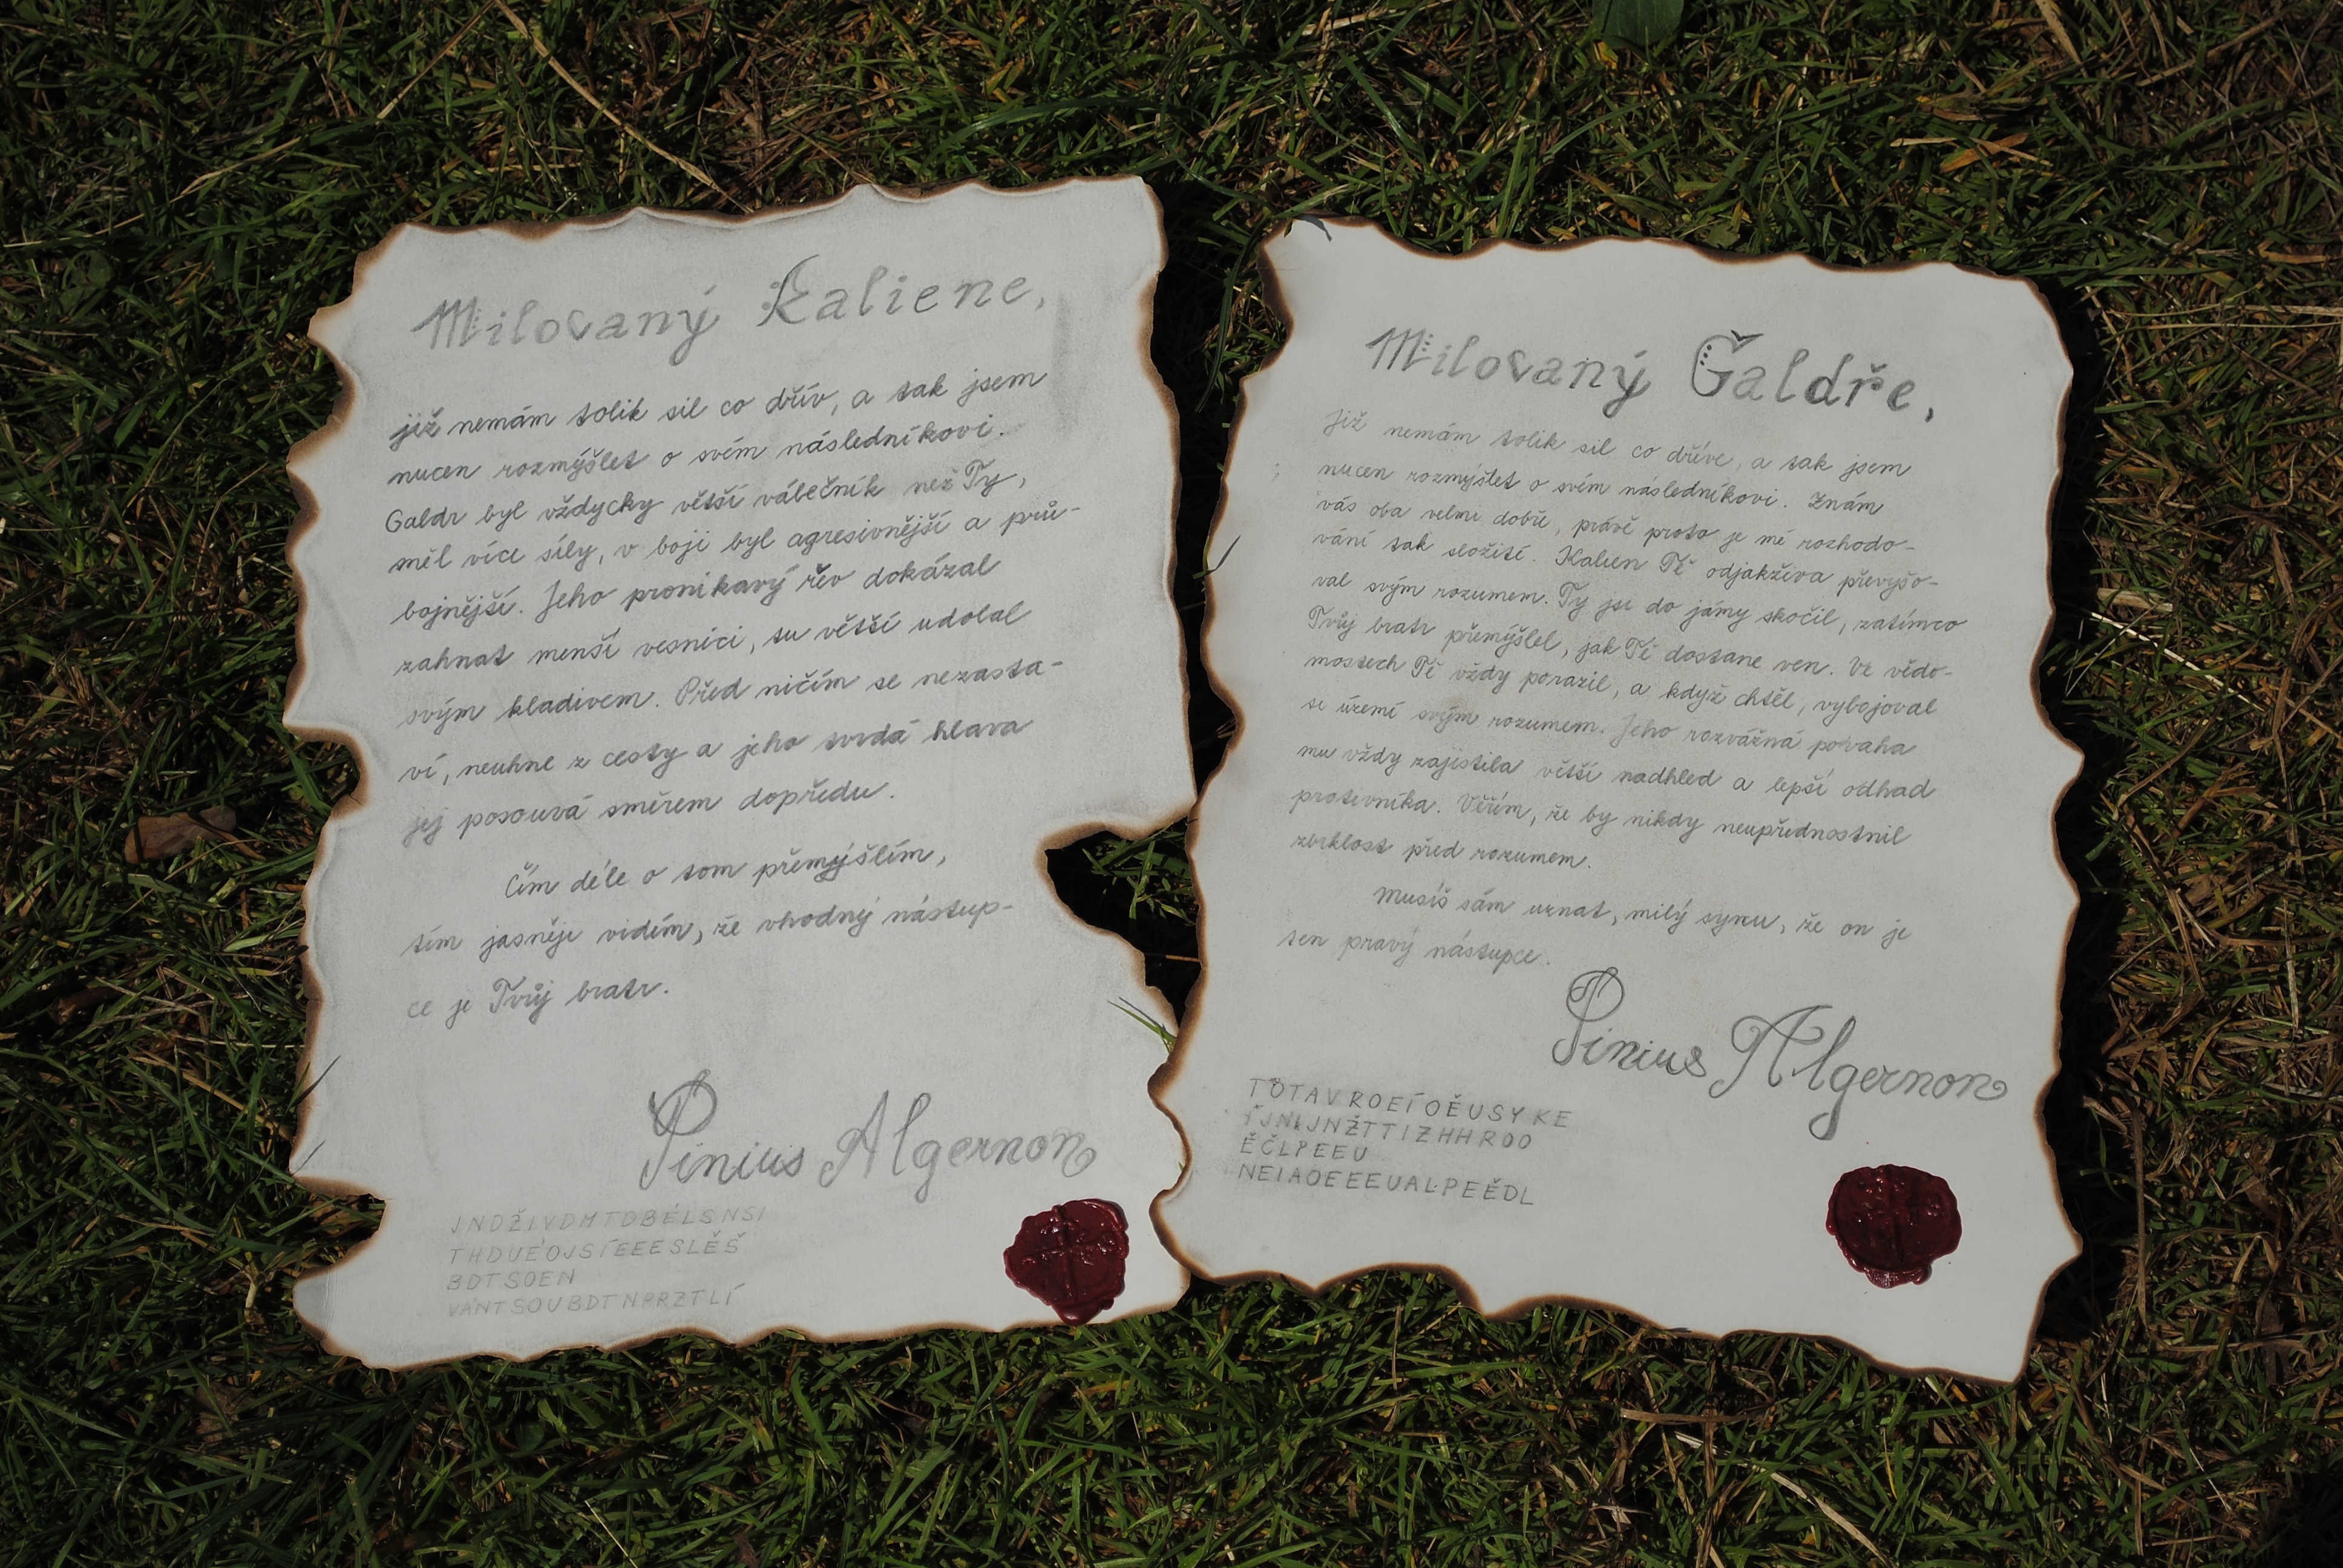 Milovaný Kaliene,
již nemám tolik sil co dřív, a tak jsem
nucen rozmýšlet o svém následníkovi.
Galdr byl vždycky větší válečník než Ty,
měl více síly, v boji byl agresivnější a prů-
bojnější. Jeho pronikavý řev dokázal
zahnat menší vesnici, tu větší udolal
svým kladivem. Před ničím se nezasta-
ví, neuhne z cesty a jeho tvrdá hlava
jej posouvá směrem dopředu.
Čím déle o tom přemýšlím,
tím jasněji vidím, že vhodný nástup-
ce je Tvůj bratr.
Pinius Algernon
JNDŽIVDMTDBÉLSNSI
THDUÉOJSÍEEESLĚŠ
BDTSOEN
VÁNTSOUBDTNPRZTLÍ
Milovaný Galdře,
Již nemám tolik sil co dříve, a tak jsem
nucen rozmýšlet o svém následníkovi. Znám
vás oba velmi dobře, právě proto je mé rozhodo-
vání tak složité. Kalien Tě odjakživa převyšo-
val svým rozumem. Ty jsi do jámy skočil, zatímco
Tvůj bratr přemýšlel, jak Tě dostane ven. Ve vědo-
mostech Tě vždy porazil, a když chtěl, vybojoval
si území svým rozumem. Jeho rozvážná povaha
mu vždy zajistila větší nadhled a lepší odhad
protivníka. Věřím, že by nikdy neupřednostnil
zbrklost před rozumem.
Musíš sám uznat, milý synu, že on je
ten pravý nástupce.
Pinius Algernon
TOTAVROEÍOĚUSYKE
ÍJNIJNŽTTIZHHROO
ĚČLPEEU
NEIAOEEEUALPEĚDL